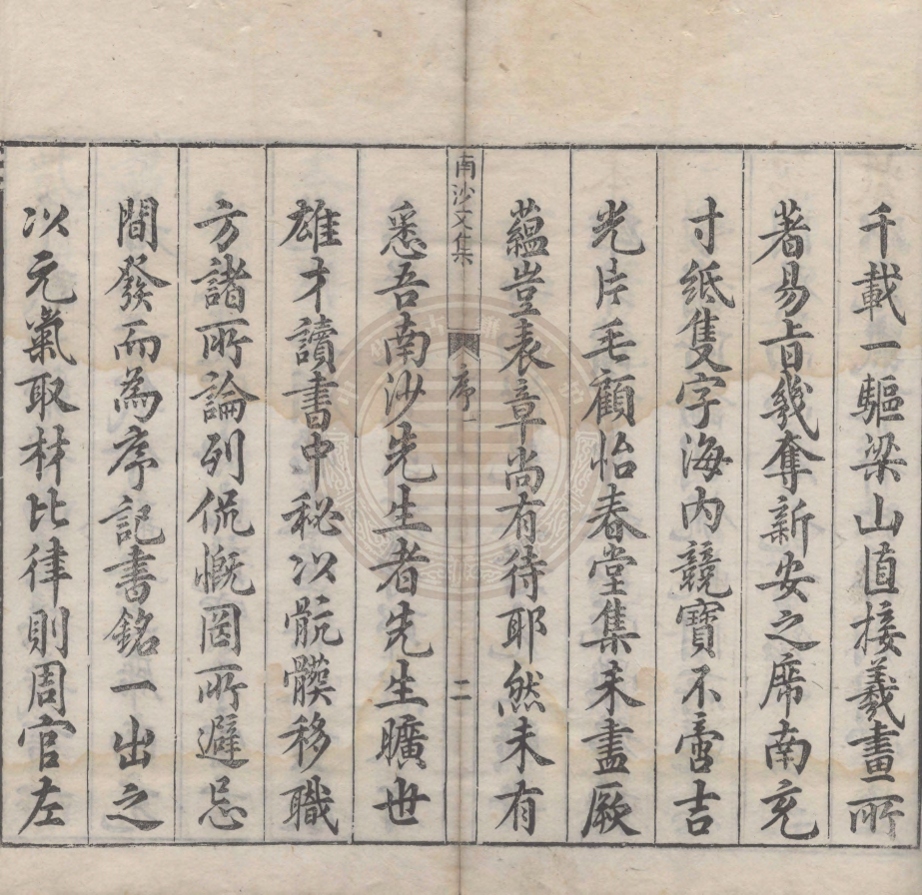 千載一驅梁山直接羲畫所
著易旨幾奪新安之席南充
寸紙隻字海内競寶不啻吉
光片毛顧怡春堂集未盡厥
蘊豈表章尚有待耶然未有
南沙文集
序一
二
悉吾南沙先生者先生曠世
雄才讀書中秘以骯髒移職
方諸所論列侃慨罔所避忌
間發而為序記書銘一出之
以元氣取材比律則周官左